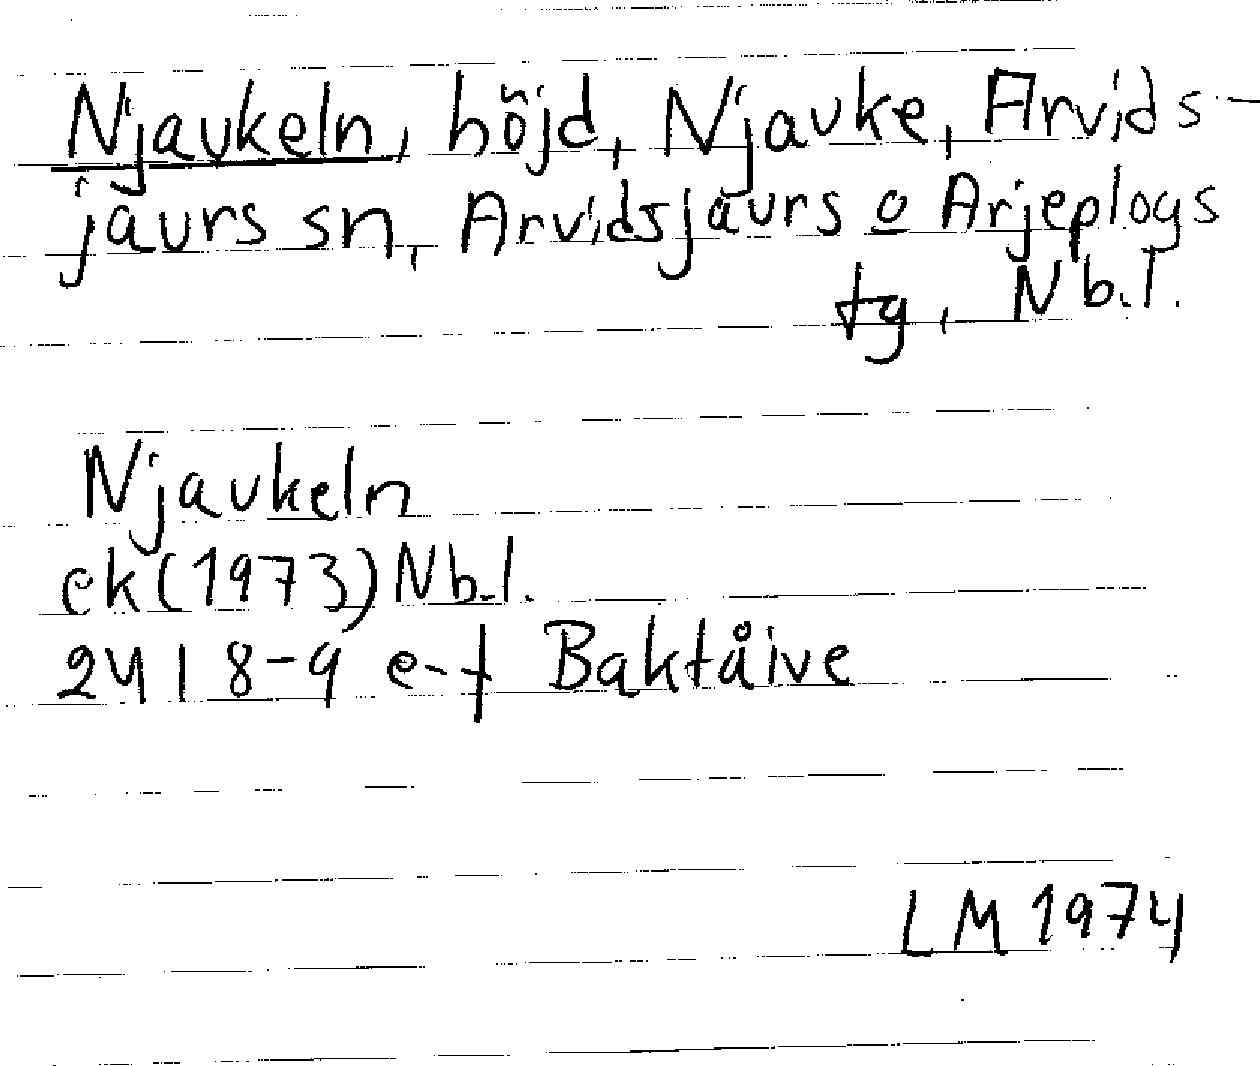 Njavkeln, höjd, Njavke, Arvids-
jaurs sn, Arvidsjaurs o Arjeplogs
tg, Nb.l.
Njavkeln
ek (1973) Nb.l.
24 I 8-9 e-f Baktåive
LM 1974